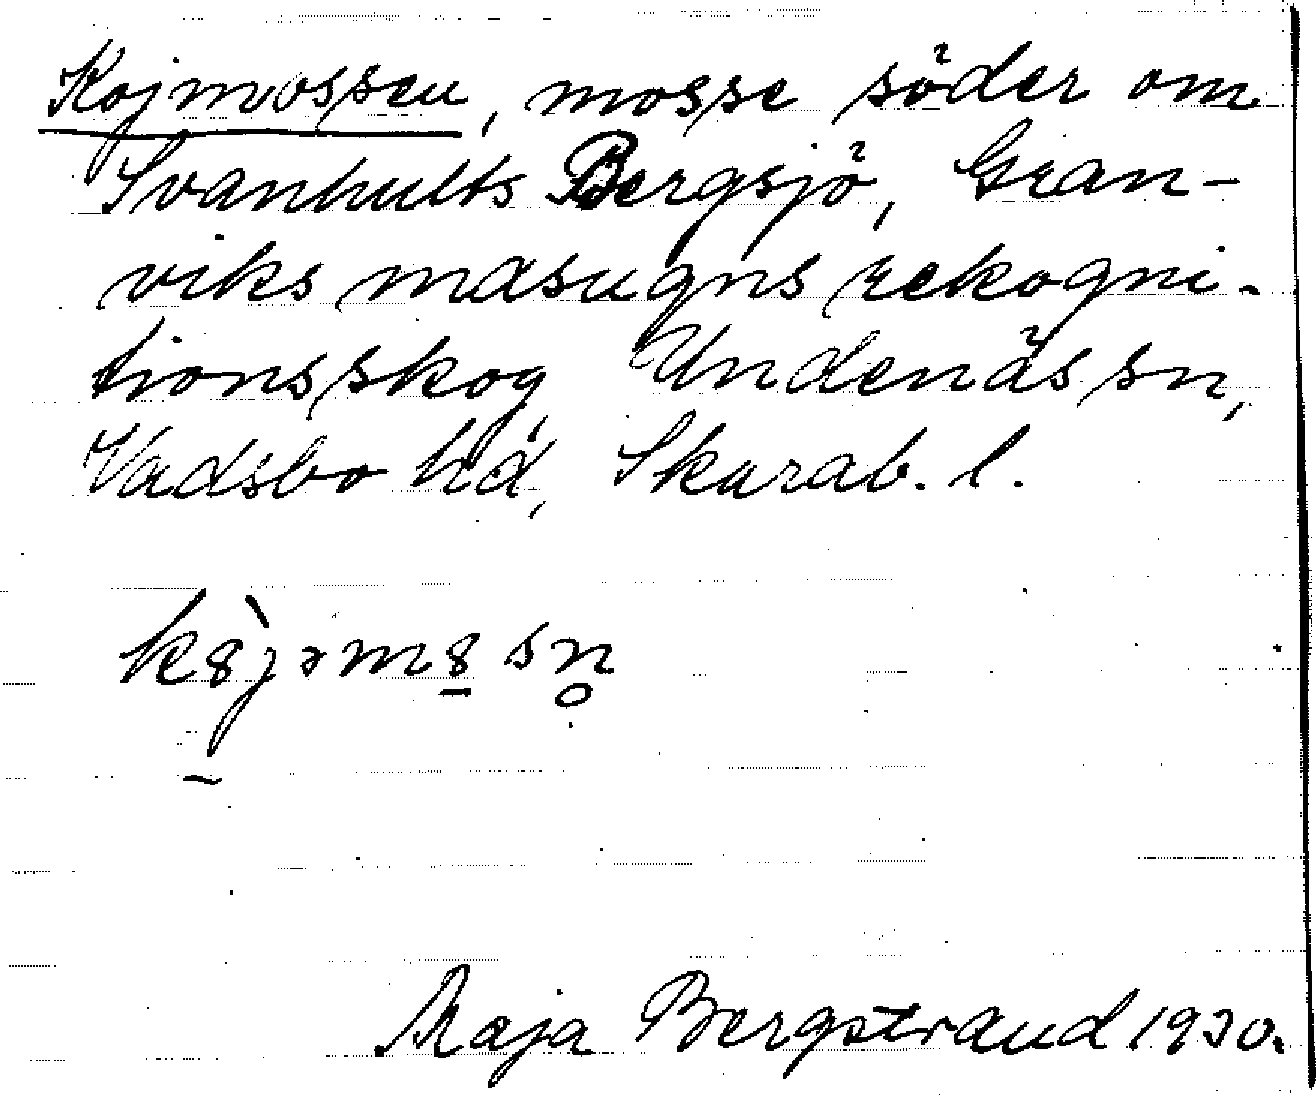 Kojmossen, mosse söder om
Svanhults Bergsjö, Gran-
viks masugns rekogni-
tionsskog, Undenäs sn,
Vadsbo hd, Skarab. l.
k8̀jəm8̲sn̥
Maja Bergstrand 1930.